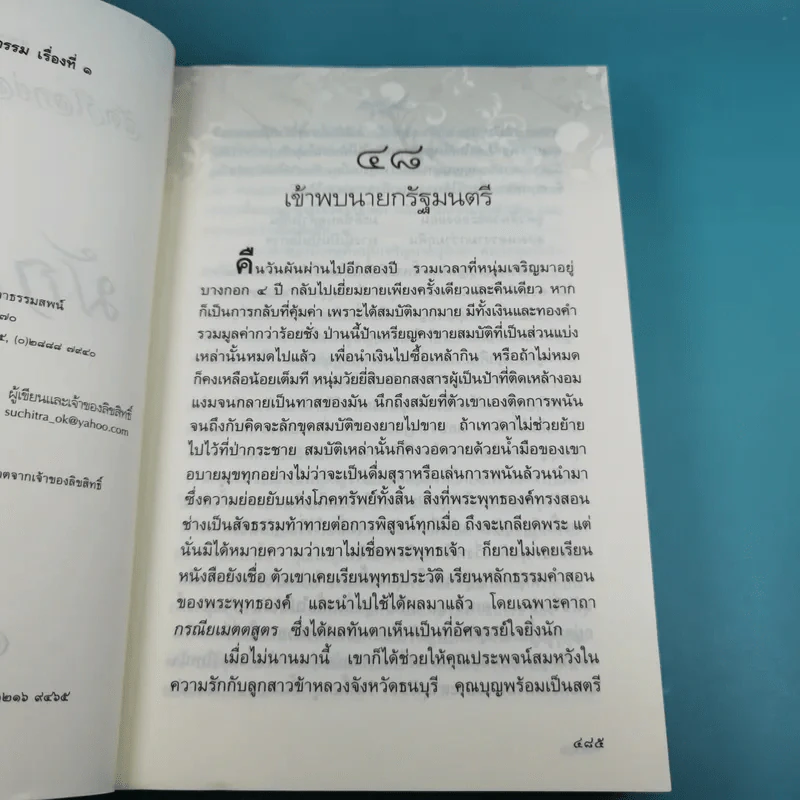 วรรม เรื่องที่ ๑
าธรรมสพน์
๗๐
๕, (๐)๒๘๘๘ ๗๙๔๐
ผู้เขียนและเจ้าของลิขสิทธิ์
suchitra_ok@yahoo.com
ตจากเจ้าของลิขสิทธิ์
๒๑๖ ๙๔๖๕
๔๘
เข้าพบนายกรัฐมนตรี
คืนวันผันผ่านไปอีกสองปี รวมเวลาที่หนุ่มเจริญมาอยู่
บางกอก ๔ ปี กลับไปเยี่ยมยายเพียงครั้งเดียวและคืนเดียว หาก
ก็เป็นการกลับที่คุ้มค่า เพราะได้สมบัติมากมาย มีทั้งเงินและทองคำ
รวมมูลค่ากว่าร้อยชั่ง ป่านนี้ป้าเหรียญคงขายสมบัติที่เป็นส่วนแบ่ง
เหล่านั้นหมดไปแล้ว เพื่อนำเงินไปซื้อเหล้ากิน หรือถ้าไม่หมด
ก็คงเหลือน้อยเต็มที หนุ่มวัยยี่สิบออกสงสารผู้เป็นป้าที่ติดเหล้างอม
แงมจนกลายเป็นทาสของมัน นึกถึงสมัยที่ตัวเขาเองติดการพนัน
จนถึงกับคิดจะลักขุดสมบัติของยายไปขาย ถ้าเทวดาไม่ช่วยย้าย
ไปไว้ที่ป่ากระชาย สมบัติเหล่านั้นก็คงวอดวายด้วยน้ำมือของเขา
อบายมุขทุกอย่างไม่ว่าจะเป็นดื่มสุราหรือเล่นการพนันล้วนนำมา
ซึ่งความย่อยยับแห่งโภคทรัพย์ทั้งสิ้น สิ่งที่พระพุทธองค์ทรงสอน
ช่างเป็นสัจธรรมท้าทายต่อการพิสูจน์ทุกเมื่อ ถึงจะเกลียดพระ แต่
นั่นมิได้หมายความว่าเขาไม่เชื่อพระพุทธเจ้า ก็ยายไม่เคยเรียน
หนังสือยังเชื่อ ตัวเขาเคยเรียนพุทธประวัติ เรียนหลักธรรมคำสอน
ของพระพุทธองค์ และนำไปใช้ได้ผลมาแล้ว โดยเฉพาะคาถา
กรณียเมตตสูตร ซึ่งได้ผลทันตาเห็นเป็นที่อัศจรรย์ใจยิ่งนัก
เมื่อไม่นานมานี้ เขาก็ได้ช่วยให้คุณประพจน์สมหวังใน
ความรักกับลูกสาวข้าหลวงจังหวัดธนบุรี คุณบุญพร้อมเป็นสตรี
๔๘๕